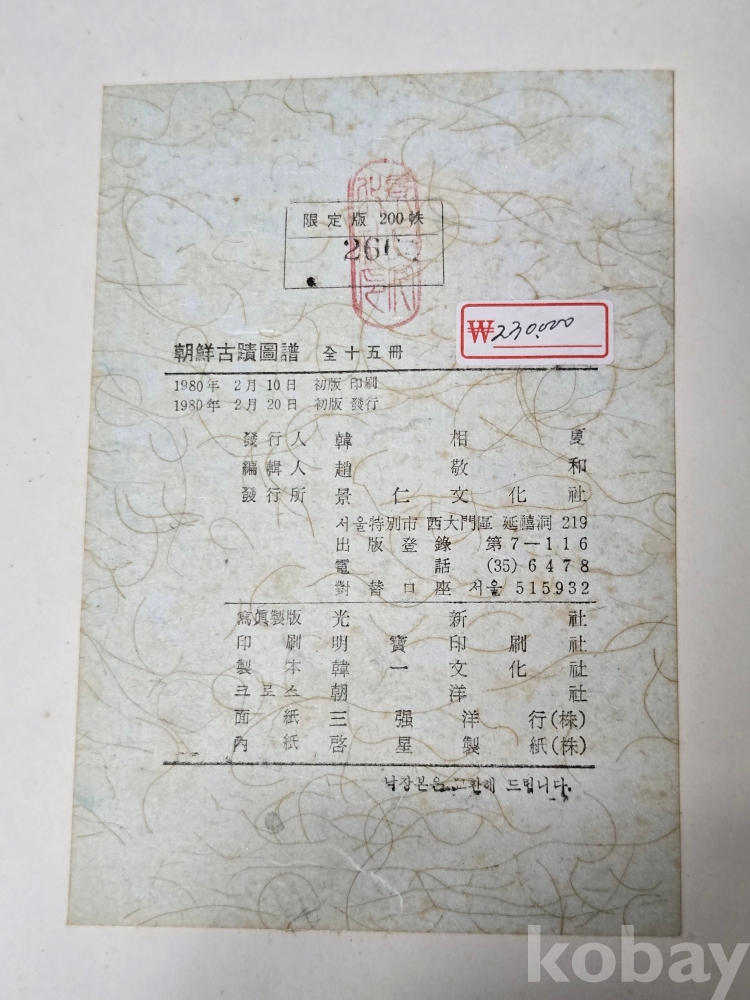 限定版 200帙
₩230,000
朝鮮古蹟圖譜 全十五冊
1980年 2月 10日 初版 印刷
1980年 2月 20日 初版 發行
發行人 韓相夏
編輯人 趙敬和
發行所 景仁文化社
서울特別市 西大門區 延禧洞 219
出版登錄 第7-116
電話 (35) 6478
對替口座 서울 515932
寫眞製版 光新社
印刷 明寶印刷社
製本 韓一文化社
크로스 朝洋社
面紙 三强洋行(株)
內紙 啓星製紙(株)
낙장본은 교환해 드립니다.
kobay